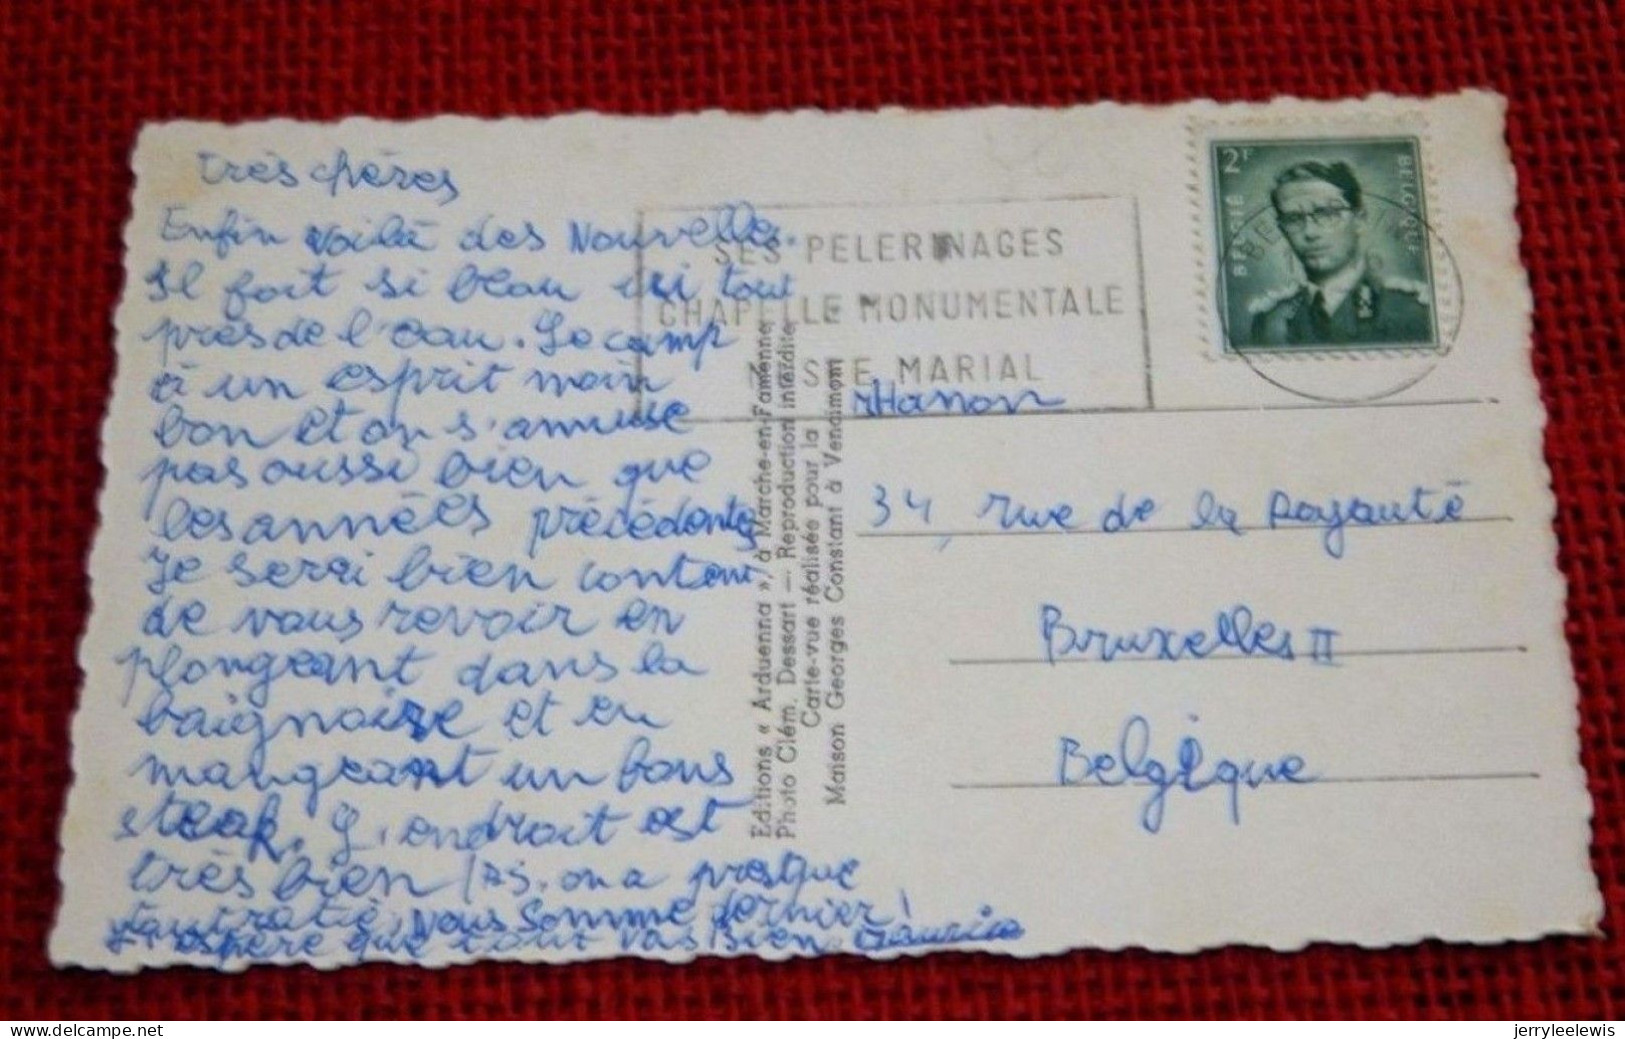 très chères
Enfin voilà des Nouvelle.
Il fait si beau ici tout
près de l'eau. Le camp
à un esprit moin
bon et on s'amuse
pas aussi bien que
les années précédentes
Je serai bien content
de vous revoir en
plongeant dans la
baignoire et en
mangeant un bons
steak. L'endroit est
très bien / PS. on a presque
tout raté, nous somme dernier!
J'espère que tout vas bien. Maurice
SES PELERINAGES
CHAPELLE MONUMENTALE
SITE MARIAL
2F
BELGIË
BELGIQUE
Editions « Arduenna », à Marche-en-Famenne
Photo Clém. Dessart — Reproduction interdite
Carte-vue réalisée pour la
Maison Georges Constant à Vencimont
Hanon
34, rue de la Royauté
Bruxelles II
Belgique
www.delcampe.net
jerryleelewis